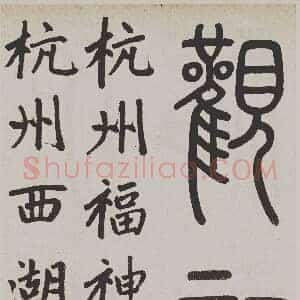 觀
杭州福神
杭州西湖
Shufaziliao.COM